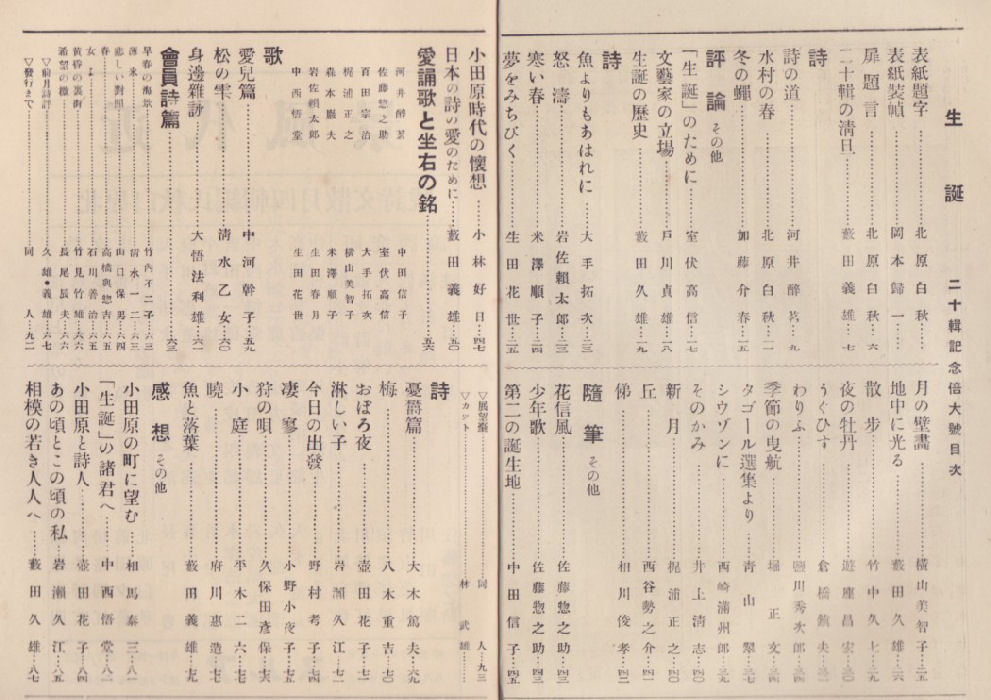 生誕
二十輯記念倍大號目次
表紙題字……北原白秋
表紙装幀……岡本歸一
扉題言……北原白秋…六
二十輯の淸旦……藪田義雄…七
詩
詩の道……河井醉茗…九
水村の春……北原白秋…一一
冬の蠅……加藤介春…一五
評論 その他
「生誕」のために……室伏高信…一七
文藝家の立場……戸川貞雄…一八
生誕の歴史……藪田久雄…一九
詩
魚よりもあはれに……大手拓次…二三
怒濤……岩佐賴太郎…二三
寒い春……米澤順子…二四
夢をみちびく……生田花世…二五
月の壁畫……橫山美智子…二五
地中に光る……藪田久雄…二六
散步……竹中久七…二九
夜の牡丹……遊座昌宏…三〇
うぐひす……倉橋鎮夫…三一
わりふ……鹽川秀次郎…三四
季節の曳航……堀正文…三六
タゴール選集より……青山翠…三七
シウゾンに……西崎滿洲郎…三九
そのかみ……井上淸志…四〇
新月……梶浦正之…四〇
丘……西谷勢之介…四一
俤……相川俊孝…四二
隨筆 その他
花信風……佐藤惣之助…四三
少年歌……佐藤惣之助…四三
第二の誕生地……中田信子…四五
小田原時代の懷想……小林好日…四七
日本の詩の愛のために……藪田義雄…五〇
愛誦歌と坐右の銘……五六
河井醉茗
佐藤惣之助
百田宗治
梶浦正之
森本巖夫
岩佐賴太郎
中西悟堂
中田信子
室伏高信
大手拓次
橫山美智子
米澤順子
生田春月
生田花世
歌
愛兒篇……中河幹子…五九
松の雫……淸水乙女…六〇
身邊雜詠……大悟法利雄…六一
會員詩篇……六三
早春の海景……竹內不二子…六三
薄氷……淸水一二…六三
悲しい對照……山口保男…六四
春……高橋與惣吉…六五
女よ……石川善治…六五
黄昏の裏街……竹見竹雄…六六
希望の櫂……長尾辰夫…六六
▽前月詩評……久雄・義雄…六七
▽發行まで……同人…九二
▽展望臺……同人…九三
▽カット……林武雄
詩
憂爵篇……大木篤夫…六九
梅……八木重吉…七〇
おぼろ夜……壺田花子…七一
淋しい子……岩瀨久江…七一
今日の出發……野村考子…七四
凄寥……小野小夜子…七五
狩の唄……久保田彥保…七六
小庭……平木二六…七七
曉……府川惠造…七七
魚と落葉……藪田義雄…七九
感想 その他
小田原の町に望む……相馬泰三…八一
「生誕」の諸君へ……中西悟堂…八一
小田原と詩人……壺田花子…八四
あの頃とこの頃の私……岩瀨久江…八五
相模の若き人人へ……藪田久雄…八七